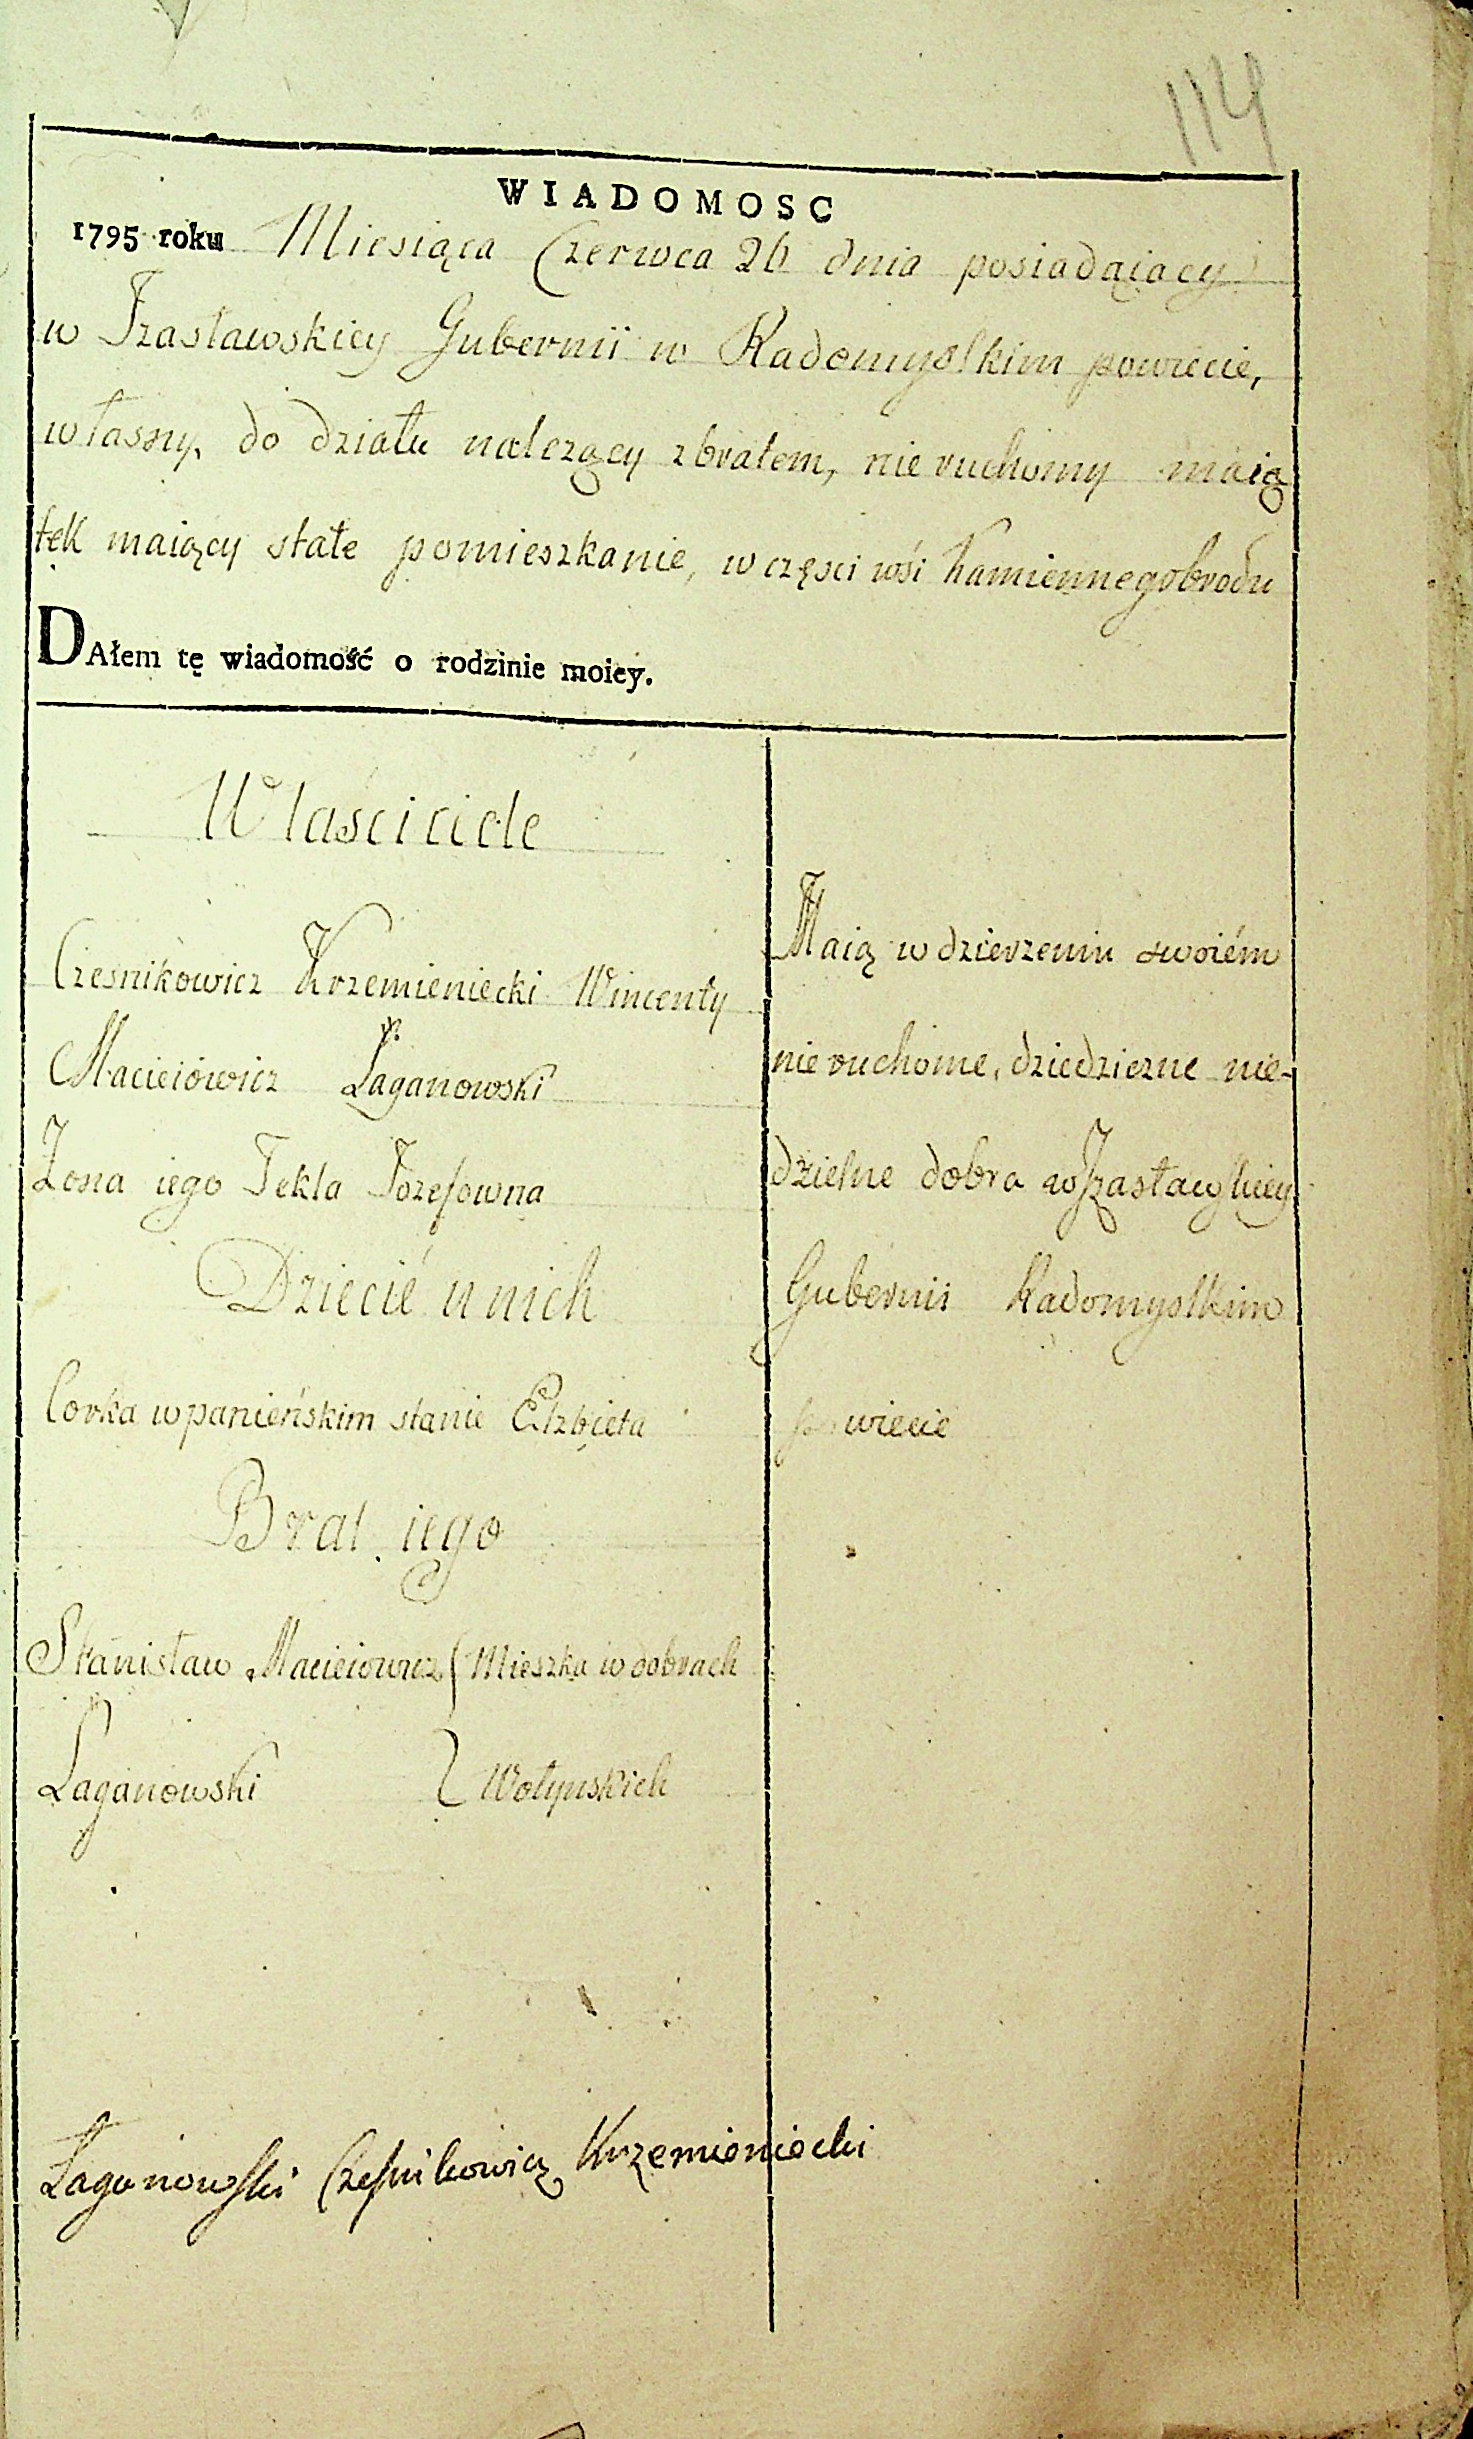 114
WIADOMOSC
1795 roku Miesiąca Czerwca 26 dnia posiadaiący
w Izasławskiey Gubernii w Radomyslkim powiecie,
własny, do działu nalezący z bratem, nieruchomy maią
tek maiący stałe pomieszkanie, w częsci wśi Kamiennegobrodu
DAłem tę wiadomość o rodzinie moiey.
Właściciele
Czesnikowicz Krzemieniecki Wincenty
Macieiowicz Łaganowski
Zona iego Tekla Jozefowna
Dziecie u nich
Corka w panieńskim stanie Elzbieta
Brat iego
Stanisław Macieiowicz { Mieszka w dobrach
Łaganowski { Wołynskich
Maią w dzierzeniu swoiém
nieruchome, dziedziczne nie-
dzielne dobra w Izasławskiey
Gubernii Radomyslkim
powiecie
Łaganowski Czesnikowicz Krzemieniecki